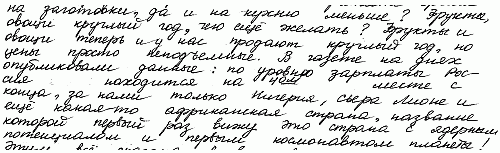 на заготовки, да и на кухню меньше? Фрукты,
овощи круглый год, чего ещё желать? Фрукты и
овощи теперь и у нас продают круглый год, но
цены просто неподъемные. В газете на днях
опубликовали данные: по уровню зарплаты Рос-
сия находится на месте с
конца, за нами только Нигерия, Сьерра Лионе и
ещё какая-то африканская страна, название
которой первый раз вижу это страна с ядерным
потенциалом и первым космонавтом планеты!